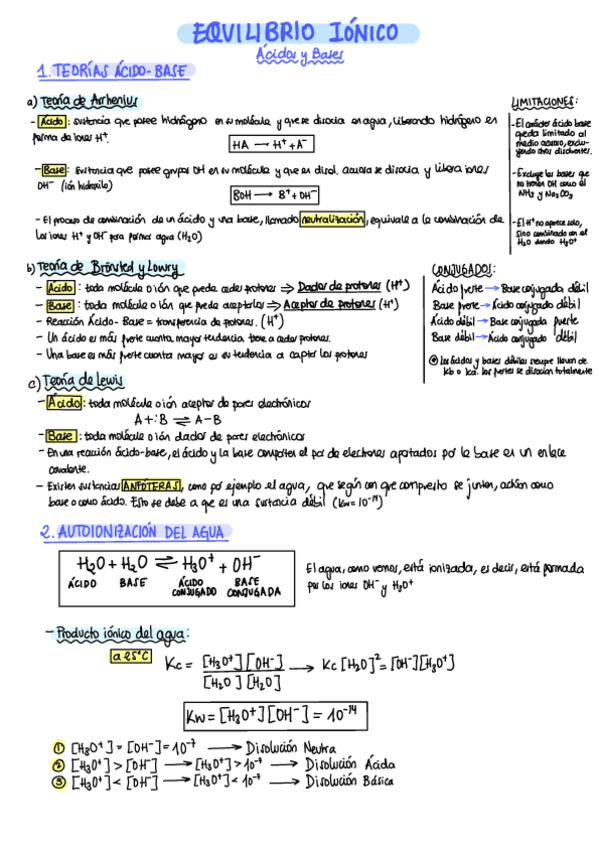 EQUILIBRIO IÓNICO
Ácidos y Bases
1. TEORÍAS ÁCIDO-BASE
a) Teoría de Arrhenius
- Ácido: sustancia que posee hidrógeno en su molécula y que se disocia en agua, liberando hidrógeno en
forma de iones H⁺.
HA → H⁺ + A⁻
- Base: sustancia que posee grupos OH en su molécula y que en disol. acuosa se disocia y libera iones
OH⁻ (ión hidroxilo)
BOH → B⁺ + OH⁻
- El proceso de combinación de un ácido y una base, llamado neutralización, equivale a la combinación de
los iones H⁺ y OH⁻ para formar agua (H₂O)
LIMITACIONES:
- El carácter ácido base
queda limitado al
medio acuoso, exclu-
yendo otros disolventes.
- Excluye las bases que
no tienen OH como el
NH₃ y Na₂CO₃
- El H⁺ no aparece solo,
sino combinado con el
H₂O dando H₃O⁺
b) Teoría de Brönsted y Lowry
- Ácido: toda molécula o ión que pueda ceder protones ⇒ Dador de protones (H⁺)
- Base: toda molécula o ión que pueda aceptarlos ⇒ Aceptor de protones (H⁺)
- Reacción Ácido-Base = transferencia de protones. (H⁺)
- Un ácido es más fuerte cuanta mayor tendencia tiene a ceder protones.
- Una base es más fuerte cuanta mayor es su tendencia a captar los protones
CONJUGADOS:
Ácido fuerte → Base conjugada débil
Base fuerte → Ácido conjugado débil
Ácido débil → Base conjugada fuerte
Base débil → Ácido conjugado débil
los ácidos y bases débiles siempre llevan de
Kb o Ka. los fuertes se disocian totalmente
c) Teoría de Lewis
- Ácido: toda molécula o ión aceptor de pares electrónicos
A + :B ⇌ A-B
- Base: toda molécula o ión dador de pares electrónicos
- En una reacción ácido-base, el ácido y la base comparten el par de electrones aportados por la base en un enlace
covalente.
- Existen sustancias ANFÓTERAS, como por ejemplo el agua, que según con que compuesto se junten, actúan como
base o como ácido. Esto se debe a que es una sustancia débil (Kw = 10⁻¹⁴)
2. AUTOIONIZACIÓN DEL AGUA
H₂O + H₂O ⇌ H₃O⁺ + OH⁻
ÁCIDO BASE ÁCIDO CONJUGADO BASE CONJUGADA
El agua, como vemos, está ionizada, es decir, está formada
por los iones OH⁻ y H₃O⁺
- Producto iónico del agua:
a 25°C
Kc = [H₃O⁺][OH⁻] / [H₂O][H₂O] → Kc[H₂O]² = [OH⁻][H₃O⁺]
Kw = [H₃O⁺][OH⁻] = 10⁻¹⁴
① [H₃O⁺] = [OH⁻] = 10⁻⁷ → Disolución Neutra
② [H₃O⁺] > [OH⁻] → [H₃O⁺] > 10⁻⁷ → Disolución Ácida
③ [H₃O⁺] < [OH⁻] → [H₃O⁺] < 10⁻⁷ → Disolución Básica